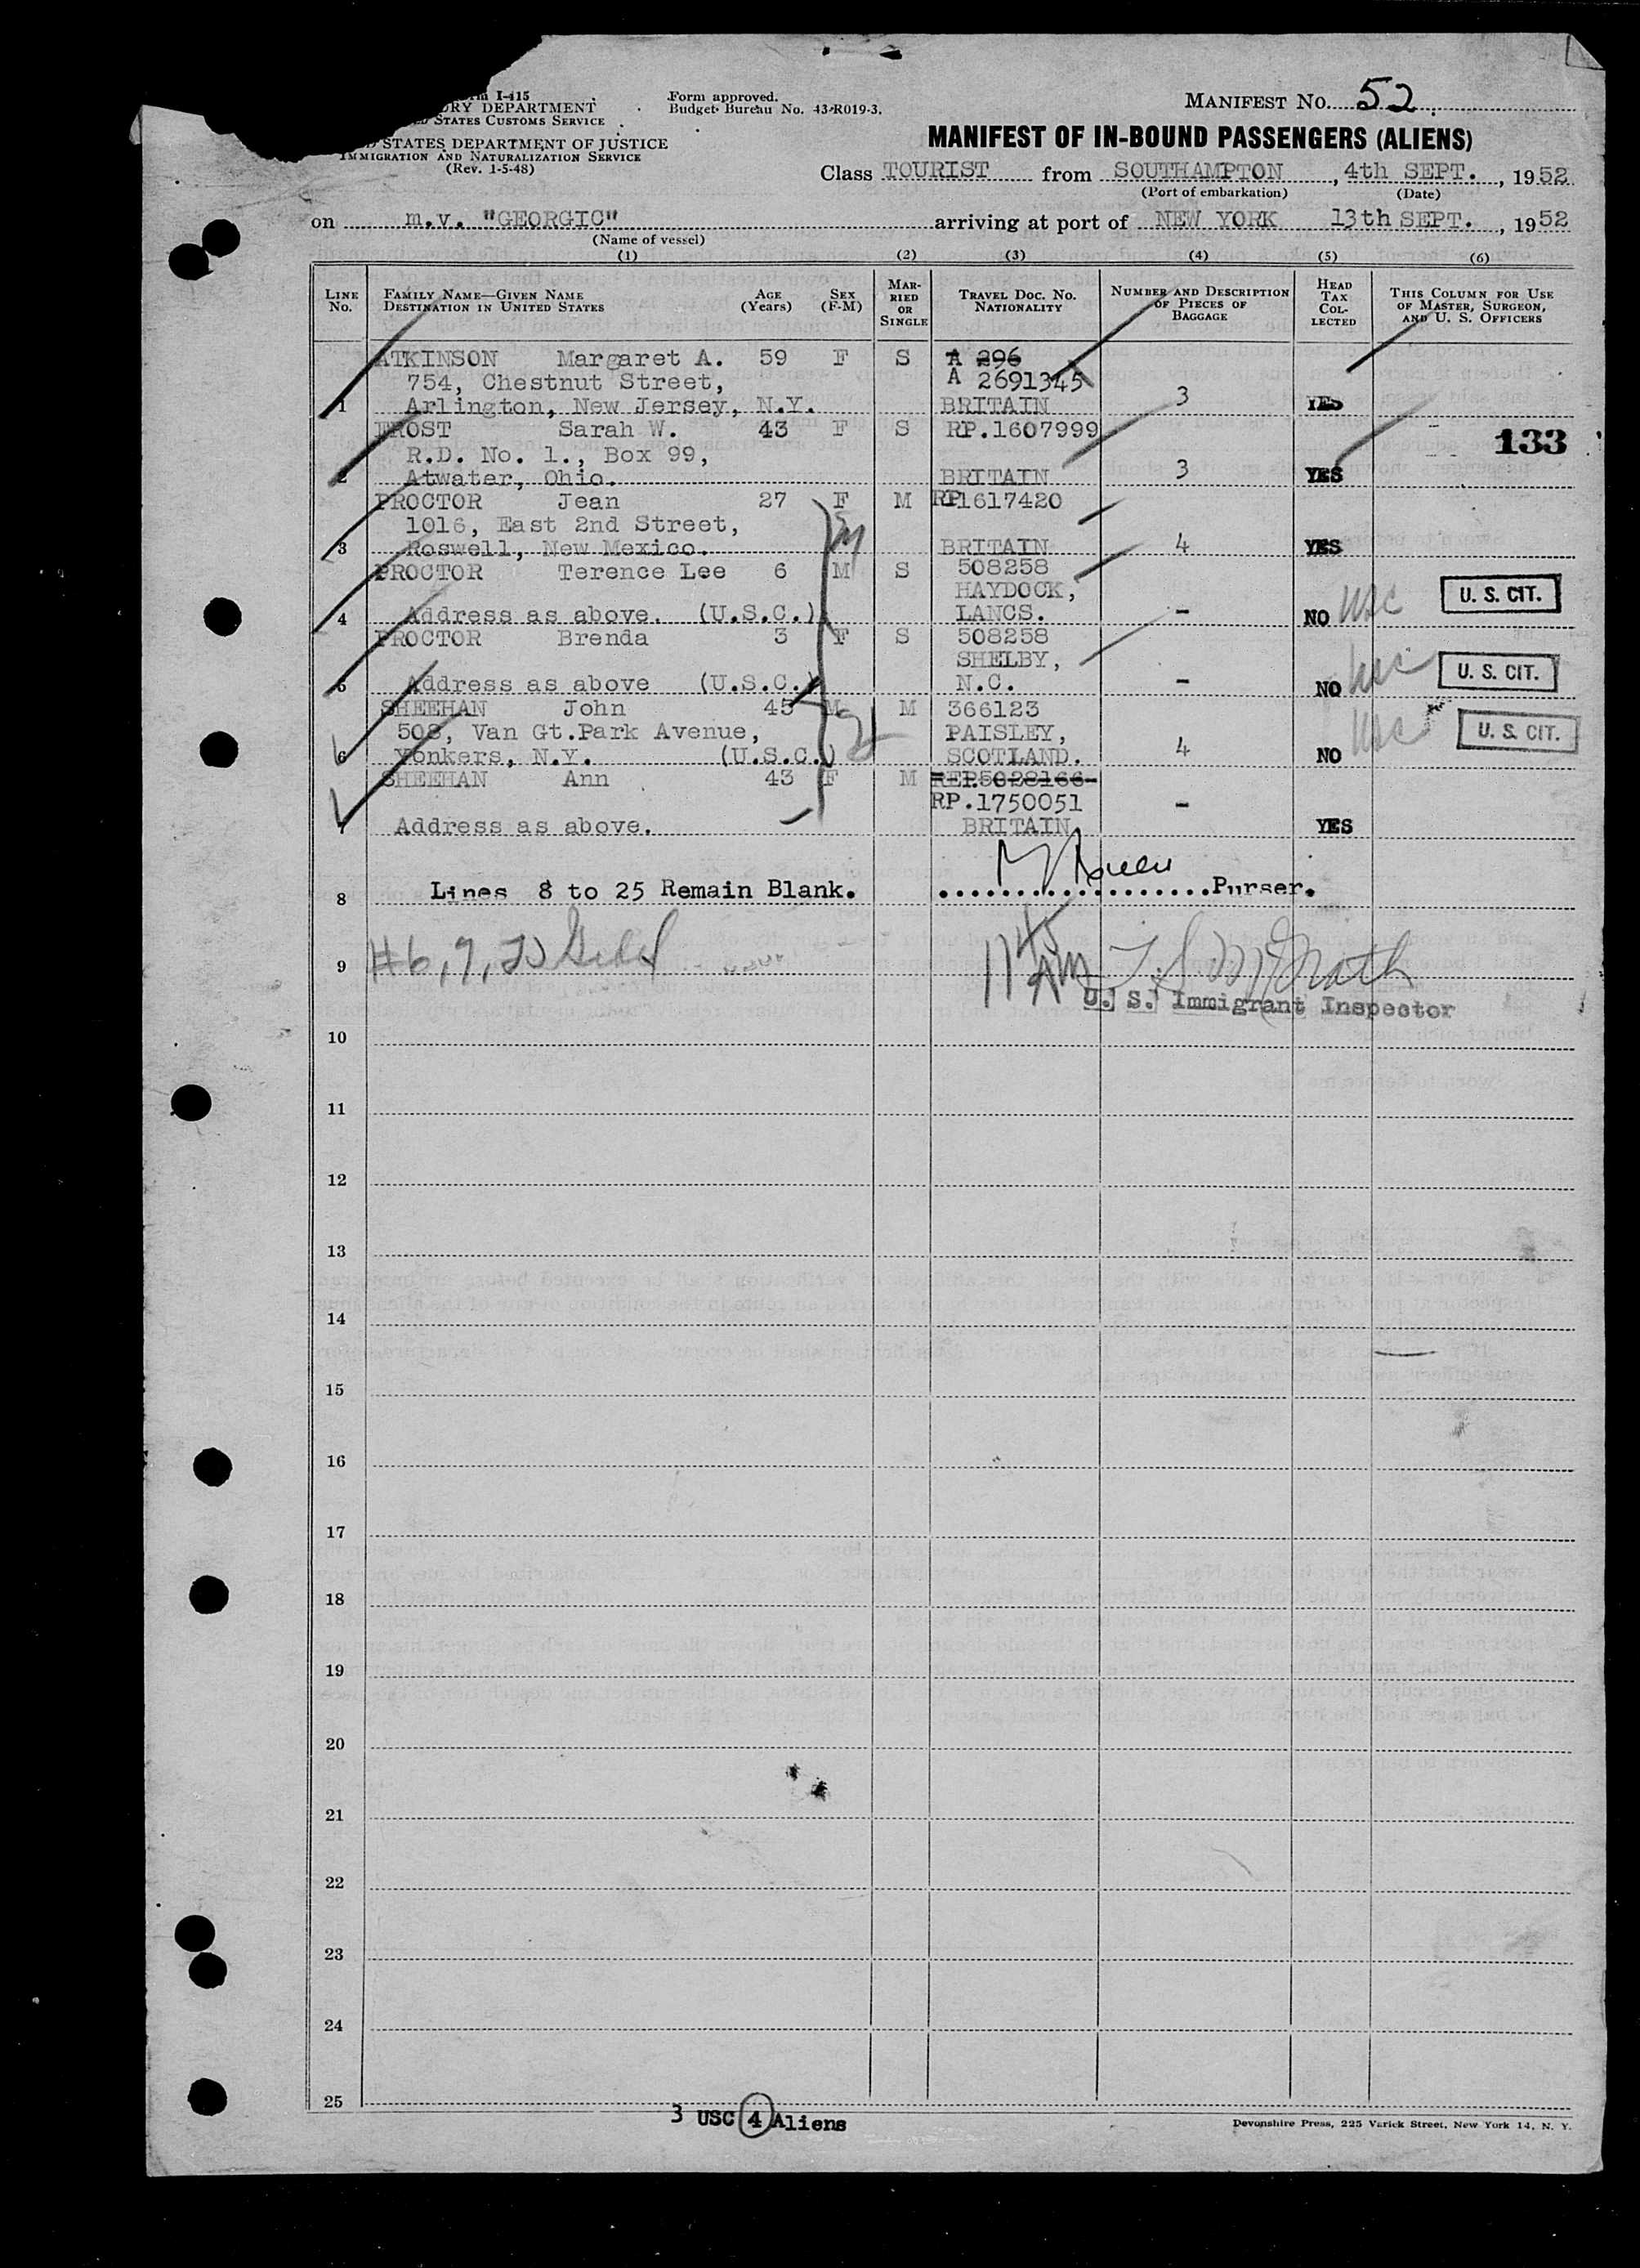 m I-415
RY DEPARTMENT
STATES CUSTOMS SERVICE
STATES DEPARTMENT OF JUSTICE
IMMIGRATION AND NATURALIZATION SERVICE
(Rev. 1-5-48)
Form approved.
Budget Bureau No. 43-R019-3.
MANIFEST NO. 52
MANIFEST OF IN-BOUND PASSENGERS (ALIENS)
Class TOURIST from SOUTHAMPTON, 4th SEPT., 1952
(Port of embarkation) (Date)
on m.v. "GEORGIC" arriving at port of NEW YORK 13th SEPT., 1952
(Name of vessel)
(1) (2) (3) (4) (5) (6)
LINE No. FAMILY NAME—GIVEN NAME DESTINATION IN UNITED STATES AGE (Years) SEX (F-M) MARRIED OR SINGLE TRAVEL DOC. NO. NATIONALITY NUMBER AND DESCRIPTION OF PIECES OF BAGGAGE HEAD TAX COLLECTED THIS COLUMN FOR USE OF MASTER, SURGEON, AND U. S. OFFICERS
ATKINSON Margaret A. 59 F S A 296
754, Chestnut Street, A 2691345
1 Arlington, New Jersey, N.Y. BRITAIN 3 YES
FROST Sarah W. 43 F S RP.1607999
R.D. No. 1., Box 99, 133
2 Atwater, Ohio. BRITAIN 3 YES
PROCTOR Jean 27 F M RP1617420
1016, East 2nd Street,
3 Roswell, New Mexico. BRITAIN 4 YES
PROCTOR Terence Lee 6 M S 508258
HAYDOCK,
4 Address as above. (U.S.C.) LANCS. - NO usc U. S. CIT.
PROCTOR Brenda 3 F S 508258
SHELBY,
5 Address as above (U.S.C.) N.C. - NO usc U. S. CIT.
SHEEHAN John 45 M M 366123
508, Van Gt.Park Avenue, PAISLEY,
6 Yonkers, N.Y. (U.S.C.) SCOTLAND. 4 NO usc U. S. CIT.
SHEEHAN Ann 43 F M REP.5028166
RP.1750051 -
7 Address as above. BRITAIN YES
8 Lines 8 to 25 Remain Blank. ..................Purser.
9 #6,7,
U. S. Immigrant Inspector
10
11
12
13
14
15
16
17
18
19
20
21
22
23
24
25
3 USC 4 Aliens
Devonshire Press, 225 Varick Street, New York 14, N. Y.